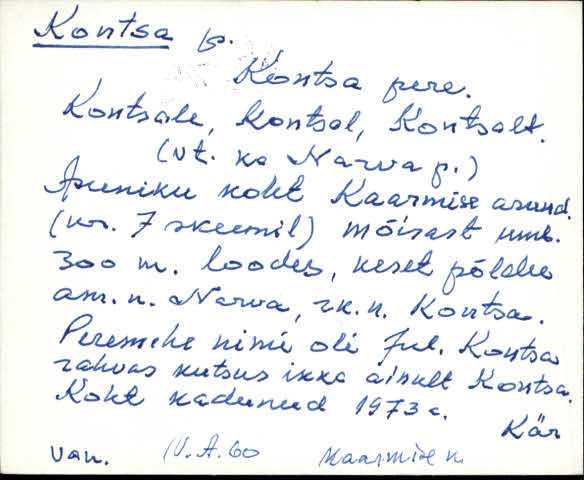 Kontsa p.
Kontsa pere.
Kontsale, Kontsal, Kontsalt.
(vt. ka Narva p.)
Asuniku koht Kaarmise asund.
(nr. 7 skeemil) mõisast umb.
300 m. loodes, keset põldu
am. n. Narva, rk. n. Kontsa.
Peremehe nimi oli Jul. Kontsa
rahvas kutsus ikka ainult Kontsa.
Koht kadunud 1973 a.
Kär
Van. V.A. 60 Kaarmise k.